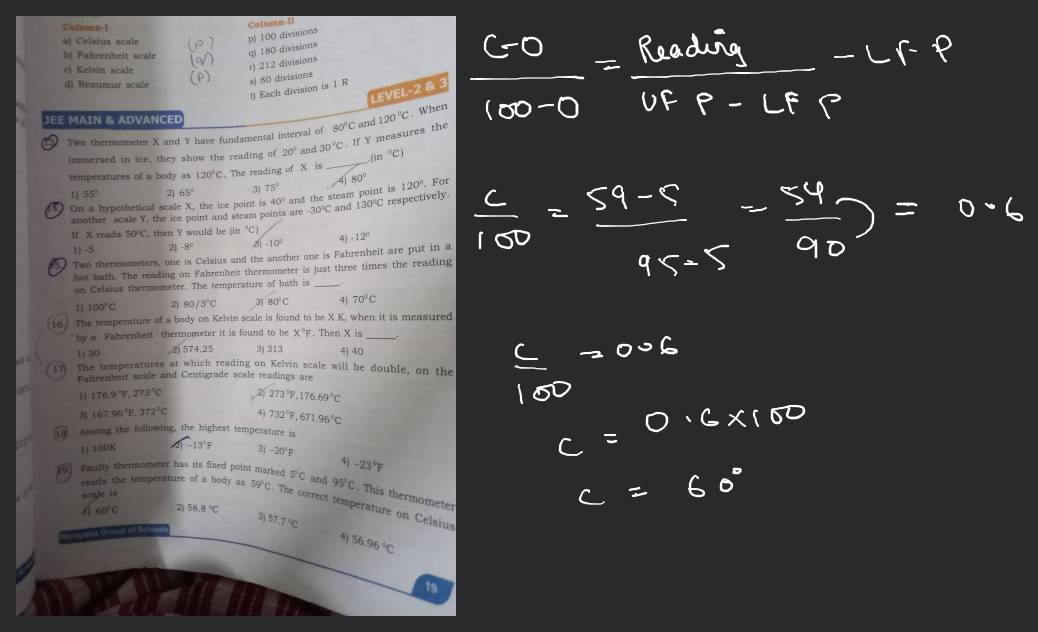 Column-I
Column-II
a) Celsius scale (P)
p) 100 divisions
b) Fahrenheit scale (q)
q) 180 divisions
c) Kelvin scale (P)
r) 212 divisions
d) Reaumur scale
s) 80 divisions
t) Each division is 1 R
LEVEL-2 & 3
JEE MAIN & ADVANCED
13. Two thermometer X and Y have fundamental interval of 80°C and 120°C. When
immersed in ice, they show the reading of 20° and 30°C. If Y measures the
temperatures of a body as 120°C, The reading of X is ______ (in °C)
1) 55° 2) 65° 3) 75° 4) 80°
14. On a hypothetical scale X, the ice point is 40° and the steam point is 120°. For
another scale Y, the ice point and steam points are -30°C and 130°C respectively.
If X reads 50°C, then Y would be (in °C)
1) -5 2) -8° 3) -10° 4) -12°
15. Two thermometers, one is Celsius and the another one is Fahrenheit are put in a
hot bath. The reading on Fahrenheit thermometer is just three times the reading
on Celsius thermometer. The temperature of bath is _____.
1) 100°C 2) 80/3°C 3) 80°C 4) 70°C
16. The temperature of a body on Kelvin scale is found to be X K, when it is measured
by a Fahrenheit thermometer it is found to be X°F. Then X is _____.
1) 30 2) 574.25 3) 313 4) 40
17. The temperatures at which reading on Kelvin scale will be double, on the
Fahrenheit scale and Centigrade scale readings are
1) 176.9°F, 273°C 2) 273°F, 176.69°C
3) 167.96°F, 372°C 4) 732°F, 671.96°C
18. Among the following, the highest temperature is
1) 100K 2) -13°F 3) -20°F 4) -23°F
19. Faulty thermometer has its fixed point marked 5°C and 95°C. This thermometer
reads the temperature of a body as 59°C. The correct temperature on Celsius
scale is
1) 60°C 2) 58.8 °C 3) 57.7 °C 4) 56.96 °C
Narayana Group of Schools
19
C-0 = Reading - LFP
100-0 UFP - LFP
C = 59-5 = 54 = 0.6
100 95-5 90
C = 0.6
100
C = 0.6×100
C = 60°